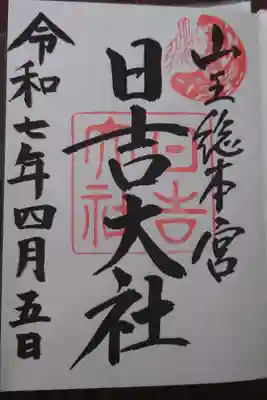 山王総本宮
日吉大社
令和七年四月五日
日吉
大社